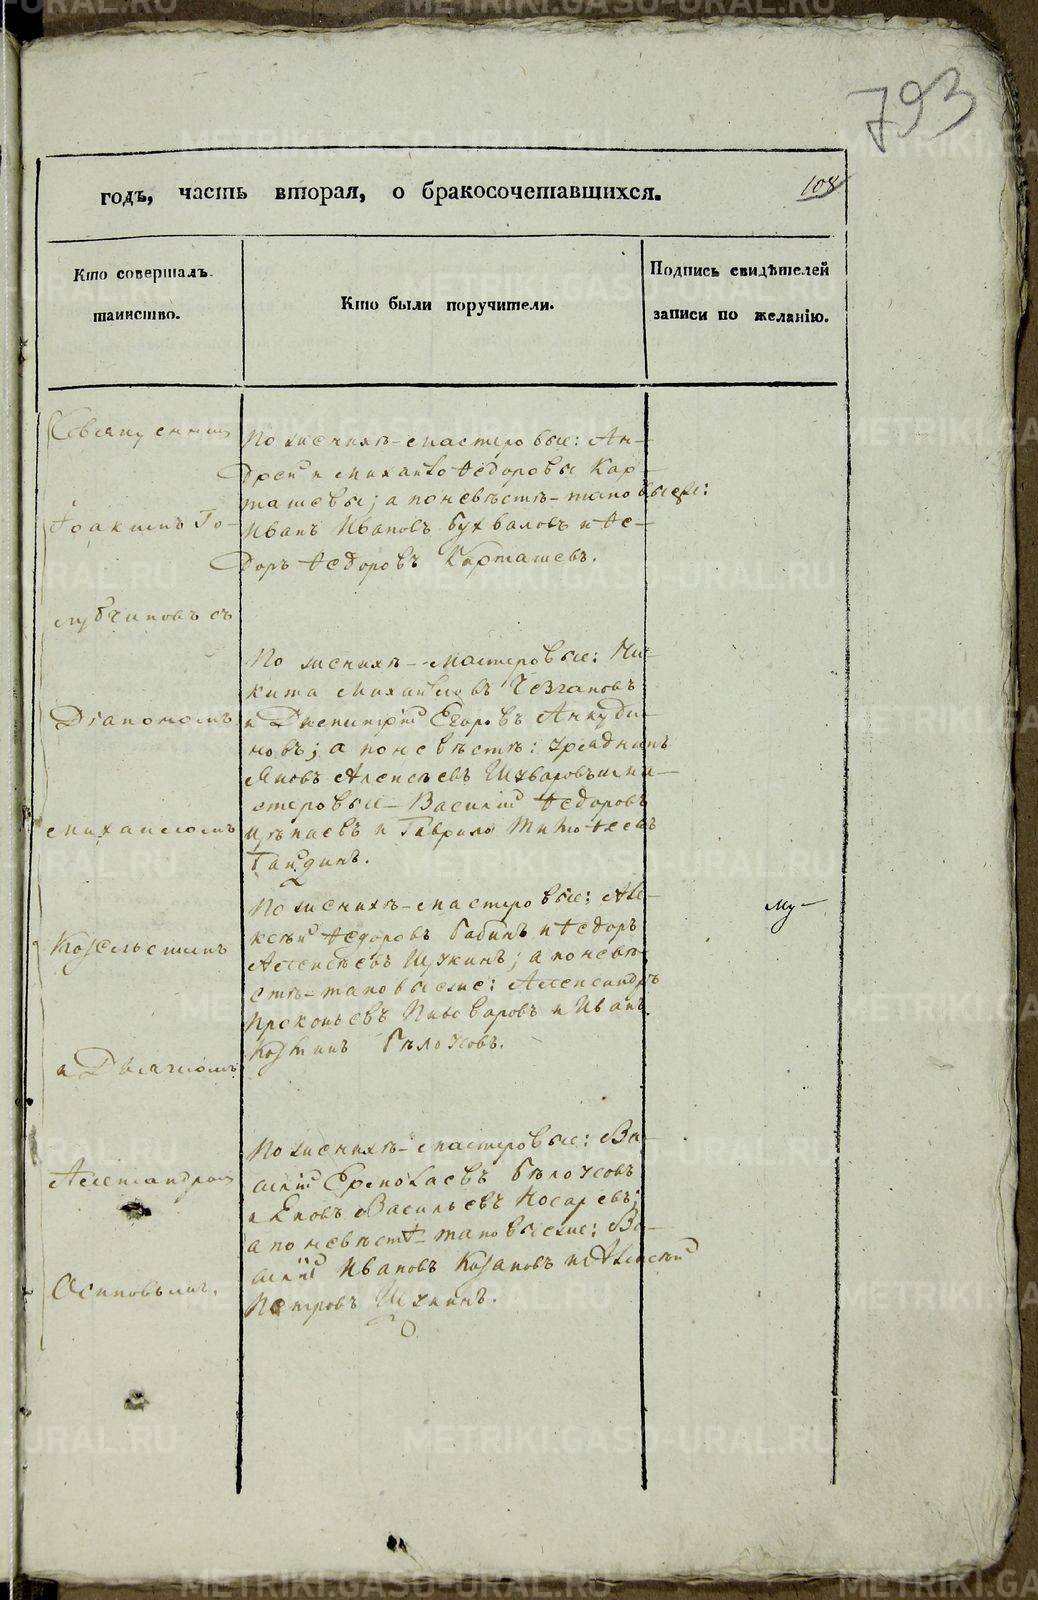 793
108
годъ, часть вторая, о бракосочетавшихся.
Кто совершалъ
таинство.
Кто были поручители.
Подпись свидѣтелей
записи по желанію.
Священникъ
Іоакимъ Го-
лубчиковъ съ
Діакономъ
Михаиломъ
Козельскимъ
и Дьячкомъ
Александромъ
Осиповымъ.
По женихѣ - мастеровые: Ан-
дрей и Михайло Ѳедоровы Кар-
ташевы; а по невѣстѣ - таковыеже:
Иванъ Ивановъ Бухваловъ и Ѳе-
доръ Ѳедоровъ Карташевъ.
По женихѣ - мастеровые: Ни-
кита Михайловъ
и Дмитрій Егоровъ Анкуди-
новъ; а по невѣстѣ: урядникъ
Яковъ Алексѣевъ
стеровые - Василій Ѳедоровъ
и Гаврило Тимоѳеевъ
Гайдинъ.
По женихѣ - мастеровые: Але-
ксѣй Ѳедоровъ Бабинъ и Ѳедоръ
Алексѣевъ Щукинъ; а по невѣ-
стѣ - таковыеже: Александръ
Прокопьевъ Пивоваровъ и Иванъ
Козминъ Бѣлоусовъ.
Му-
По женихѣ - мастеровые: Ва-
силій Ермолаевъ Бѣлоусовъ
и Яковъ Васильевъ Носаревъ;
а по невѣстѣ - таковыеже: Ва-
силій Ивановъ Козаковъ и Алексѣй
Петровъ Щукинъ.
METRIKI.GASO-URAL.RU